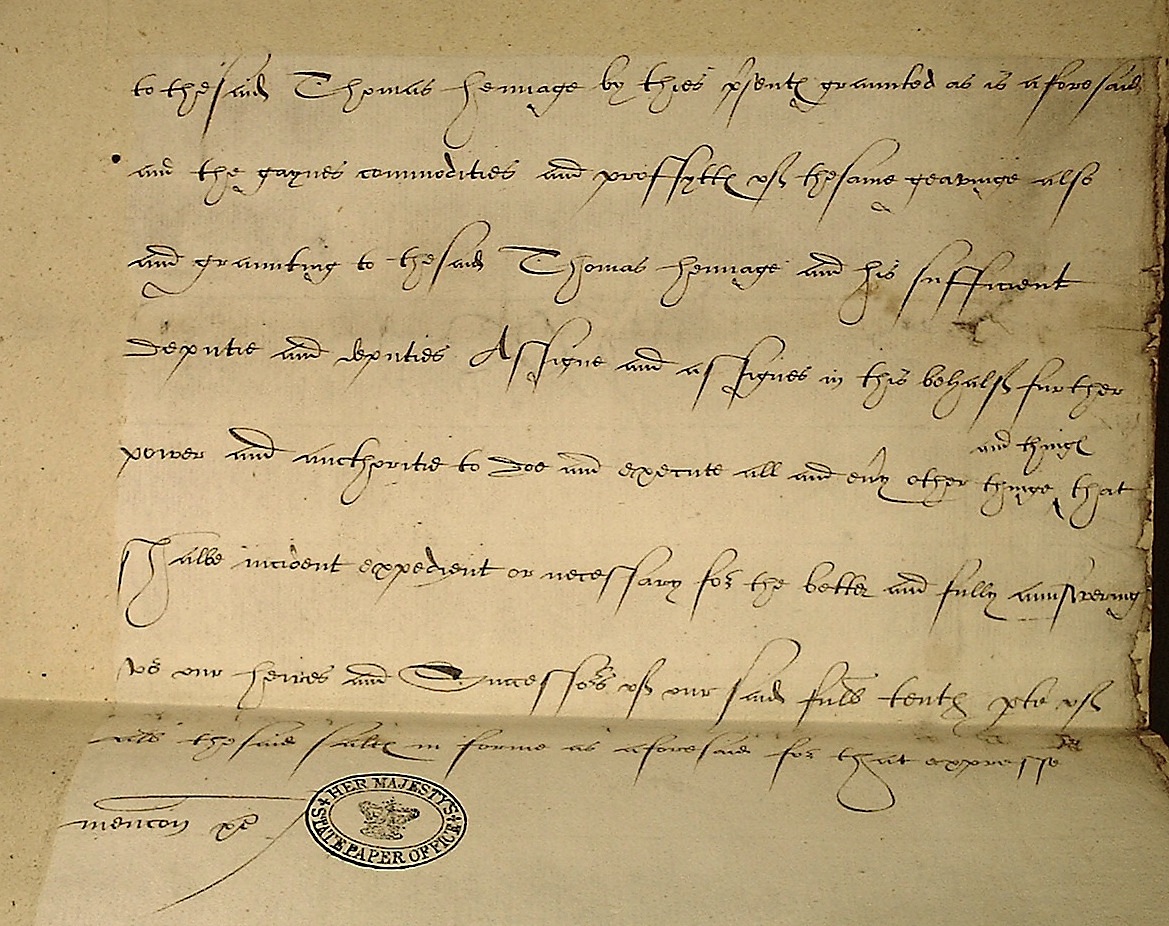 to thesaid Thomas Hennage by thies p'sentes graunted as is aforesaid
and the gaynes commodities and proffyttes of thesame geavinge also
and graunting to thesaid Thomas Hennage and his sufficient
deputie and deputies Assigne and assignes in this behalf further
power and aucthoritie to doe and execute all and eu'y other thinge and thinges that
shalbe incident expedient or necessary for the better and fully aunswering
vs our heires and Successors of our said full tenth p'te of
all thesaid saltes in forme as aforesaid for that expresse
mencon &c
HER MAJESTY'S STATE PAPER OFFICE